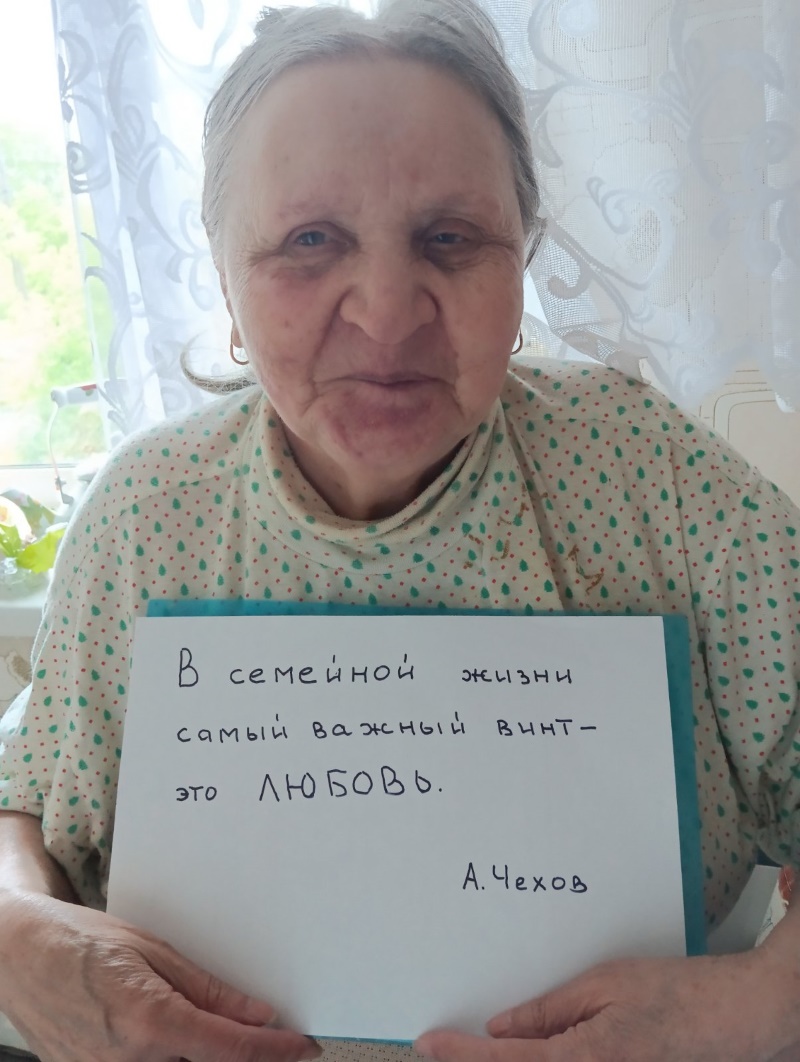 В семейной жизни
самый важный винт-
это ЛЮБОВЬ.
А.Чехов